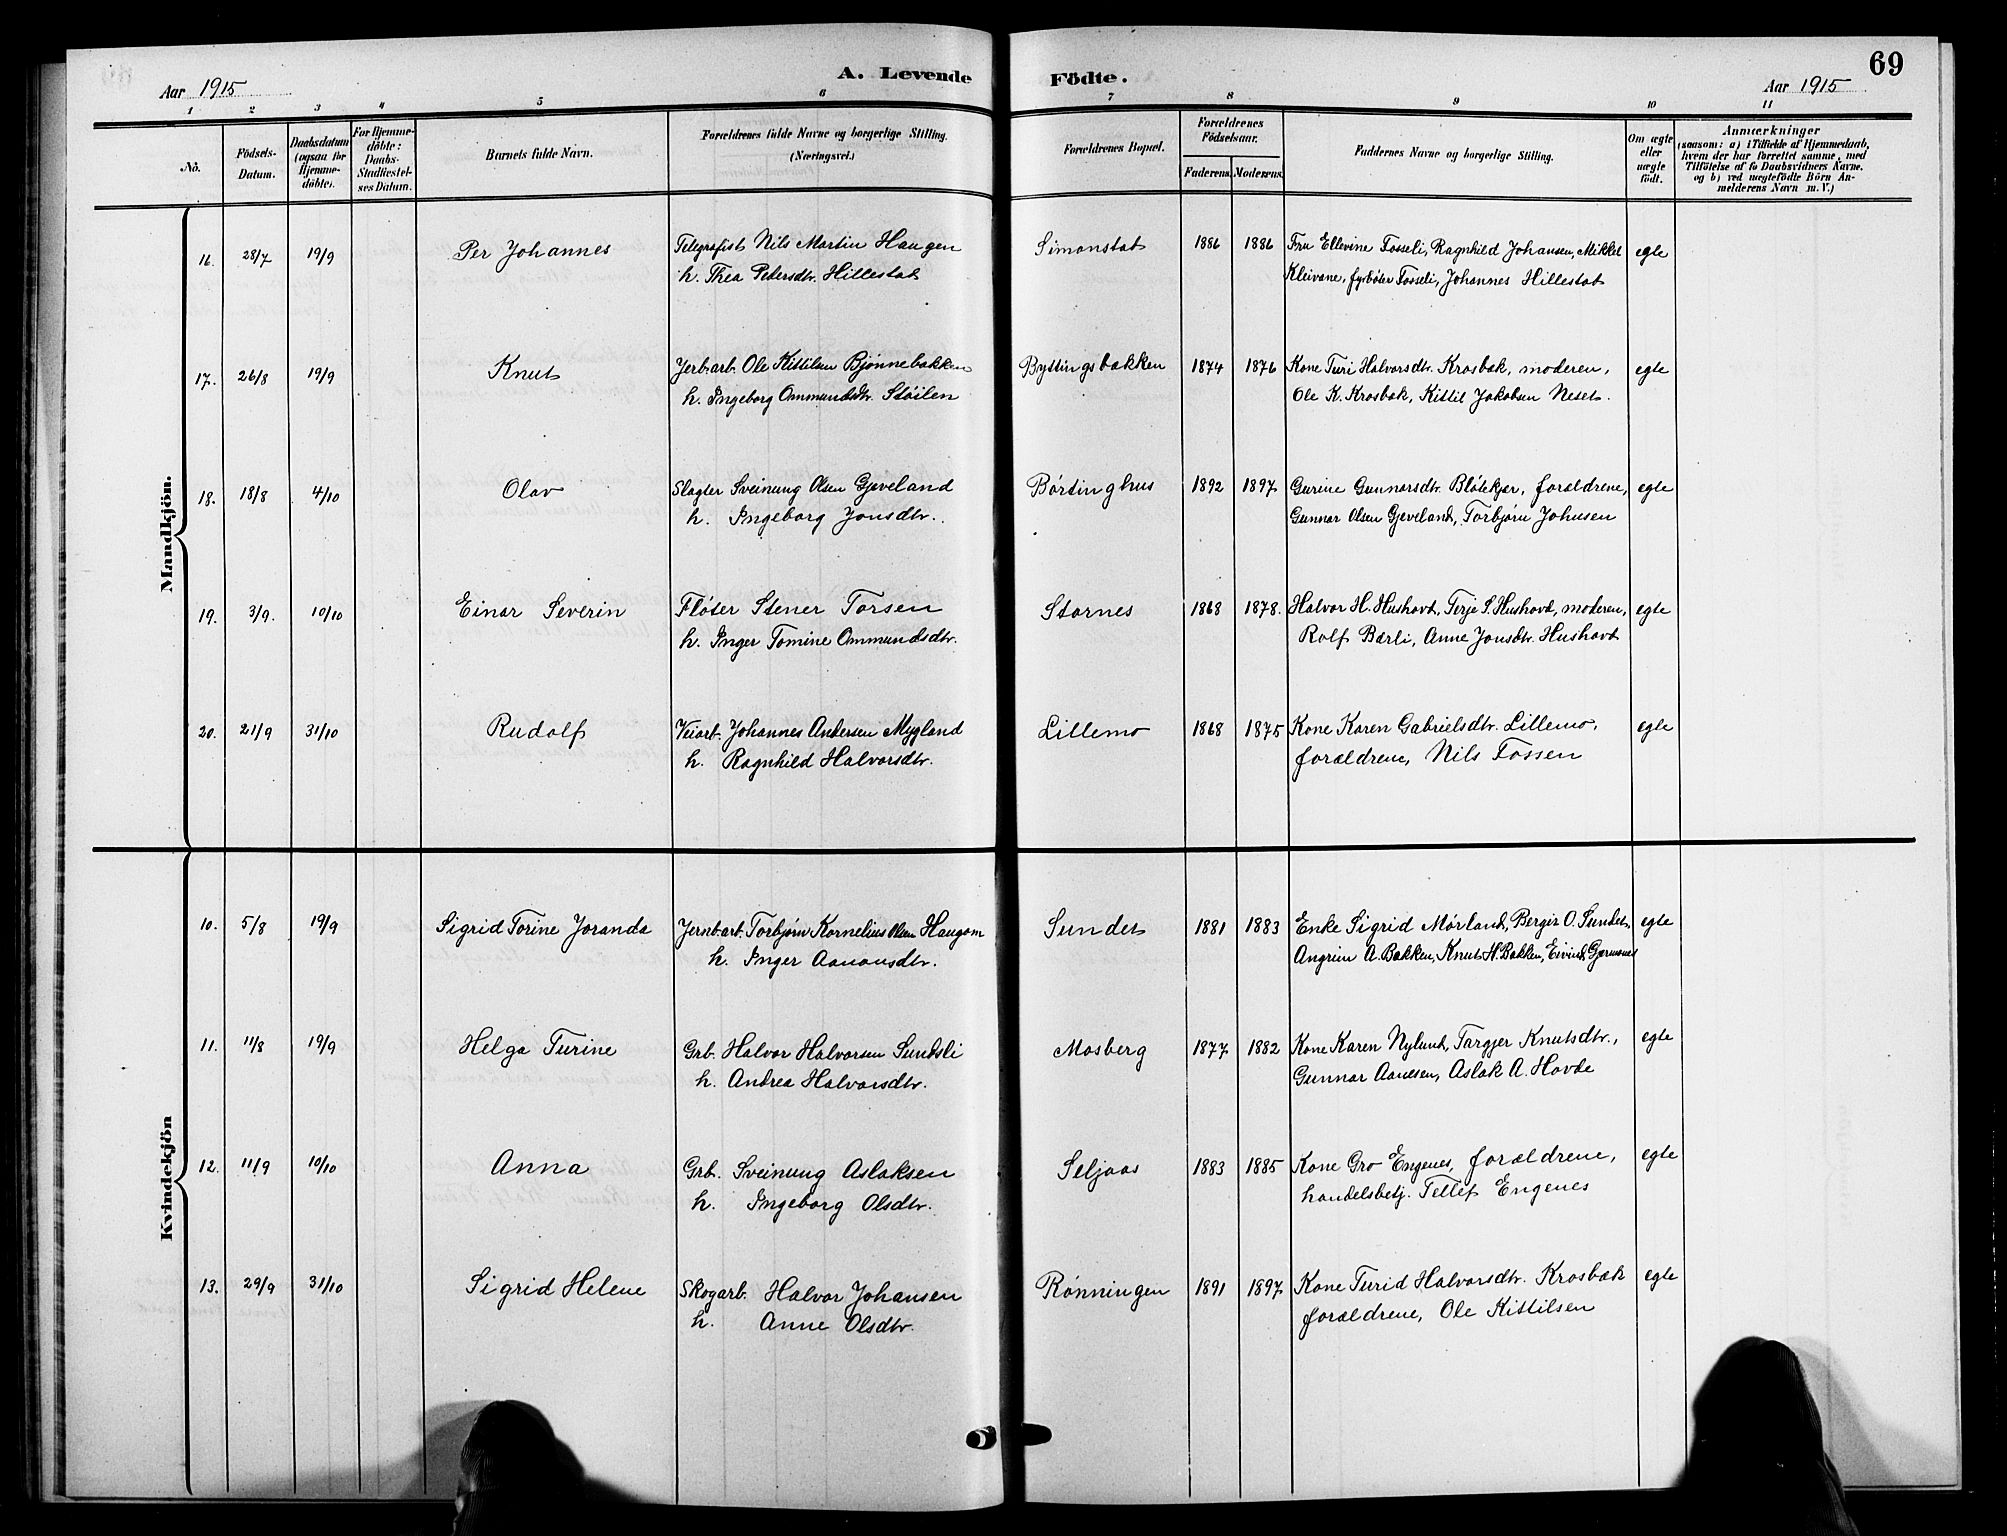 69
A. Levende Födte.
Aar 1915
Aar 1915
1 2 3 4 5 6 7 8 9 10 11
No.
Födsels-Datum.
Daabsdatum (ogsaa for Hjemme-döbte).
For Hjemme-döbte: Daabs-Stadfæstel-ses Datum.
Barnets fulde Navn.
Forældrenes fulde Navne og borgerlige Stilling. (Næringsvei.)
Forældrenes Bopæl.
Forældrenes Födselsaar.
Faderens. Moderens.
Faddernes Navne og borgerlige Stilling.
Om ægte eller uægte födt.
Anmærkninger
(saasom: a) i Tilfælde af Hjemmedaab, hvem der har forrettet samme, med Tilföielse af to Daabsvidners Navne. og b) ved uægtefödte Börn An-melderens Navn m. V.)
Mandkjön.
16. 28/7 19/9 Per Johannes Telegrafist Nils Martin Haugen Simonstat 1886 1886 Fru Ellevine Fosseli, Ragnhild Johansen, Mikkel egte
h. Thea Petersdtr. Hillestat Kleivane, fyrbøter Fosseli, Johannes Hillestat
17. 26/8 19/9 Knut Jerb.arb. Ole Kittilsen Bjønnebakken Byttingsbakken 1874 1876 Kone Turi Halvorsdtr. Krosbak, moderen, egte
h. Ingeborg Ommundsdtr. Støilen Ole K. Krosbak, Kittil Jakobsen Neset.
18. 18/8 4/10 Olav Slagter Sveinung Olsen Gjeveland Børtinghus 1892 1897 Gurine Gunnarsdtr. Bløtekjær, forældrene, egte
h. Ingeborg Jonsdtr. Gunnar Olsen Gjeveland, Torbjørn Johnsen
19. 3/9. 10/10 Einar Severin Fløter Stener Torsen Stornes 1868 1878. Halvor H. Hushovt, Terje S. Hushovt, moderen, egte
h. Inger Tomine Ommundsdtr. Rolf Bærli, Anne Jonsdtr. Hushovt
20. 21/9 31/10 Rudolf Veiarb. Johannes Andersen Mygland Lillemo 1868 1875 Kone Karen Gabrielsdtr. Lillemo, egte
h. Ragnhild Halvorsdtr. forældrene, Nils Fossen
Kvindekjön
10. 5/8 19/9 Sigrid Torine Joranda Jernb.arb. Torbjørn Kornelius Olsen Haugom Sundet 1881 1883 Enke Sigrid Mørland, Bergit O. Sundet, egte
h. Inger Aanonsdtr. Angrim A. Bakken, Knut H. Bakken, Eivind Gjermenes
11. 11/8 19/9 Helga Turine Grb. Halvor Halvorsen Sundsli Mosberg 1877 1882 Kone Karen Nylund, Targjer Knutsdtr., egte
h. Andrea Halvorsdtr. Gunnar Aanesen, Aslak A. Hovde
12. 11/9 10/10 Anna Grb. Sveinung Aslaksen Seljaas 1883 1885 Kone Gro Engenes, forældrene, egte
h. Ingeborg Olsdtr. handelsbetj. Tellef Engenes
13. 29/9 31/10 Sigrid Helene Skogarb. Halvor Johansen Rønningen 1891 1897 Kone Turid Halvorsdtr. Krosbæk egte
h. Anne Olsdtr. forældrene, Ole Kittilsen